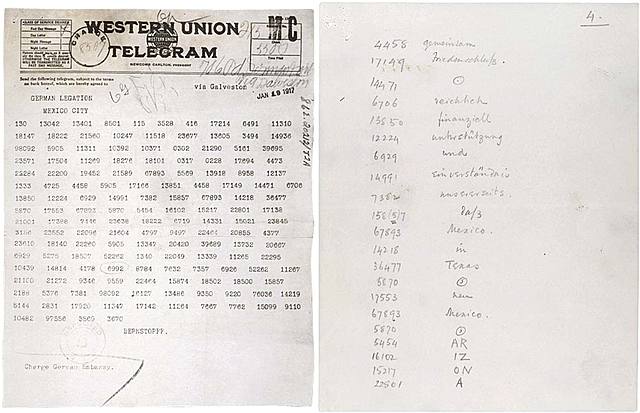 WESTERN UNION
TELEGRAM
NEWCOMB CARLTON, PRESIDENT
Send the following telegram, subject to the terms
on back hereof, which are hereby agreed to
via Galveston
JAN 19 1917
GERMAN LEGATION
MEXICO CITY
130 13042 13401 8501 115 3528 416 17214 6491 11310
18147 18222 21560 10247 11518 23677 13605 3494 14936
98092 5905 11311 10392 10371 0302 21290 5161 39695
23571 17504 11269 18276 18101 0317 0228 17694 4473
22284 22200 19452 21589 67893 5569 13918 8958 12137
1333 4725 4458 5905 17166 13851 4458 17149 14471 6706
13850 12224 6929 14991 7382 15857 67893 14218 36477
5870 17553 67893 5870 5454 16102 15217 22801 17138
21001 17388 7446 23638 18222 6719 14331 15021 23845
3156 23552 22096 21604 4797 9497 22464 20855 4377
23610 18140 22260 5905 13347 20420 39689 13732 20667
6929 5275 18507 52262 1340 22049 13339 11265 22295
10439 14814 4178 6992 8784 7632 7357 6926 52262 11267
21100 21272 9346 9559 22464 15874 18502 18500 15857
2188 5376 7381 98092 16127 13486 9350 9220 76036 14219
5144 2831 17920 11347 17142 11264 7667 7762 15099 9110
10482 97556 3569 3670
BERNSTORFF.
Charge German Embassy.
4.
4458 gemeinsam
17149 Friedensschluß.
14471 ⊙
6706 reichlich
13850 finanziell
12224 unterstützung
6929 und
14991 einverständnis
7382 unsererseits.
158(5)7 daß
67893 Mexico.
14218 in
36477 Texas
5870 ⊙
17553 neu
67893 Mexico.
5870 ⊙
5454 AR
16102 IZ
15217 ON
22801 A